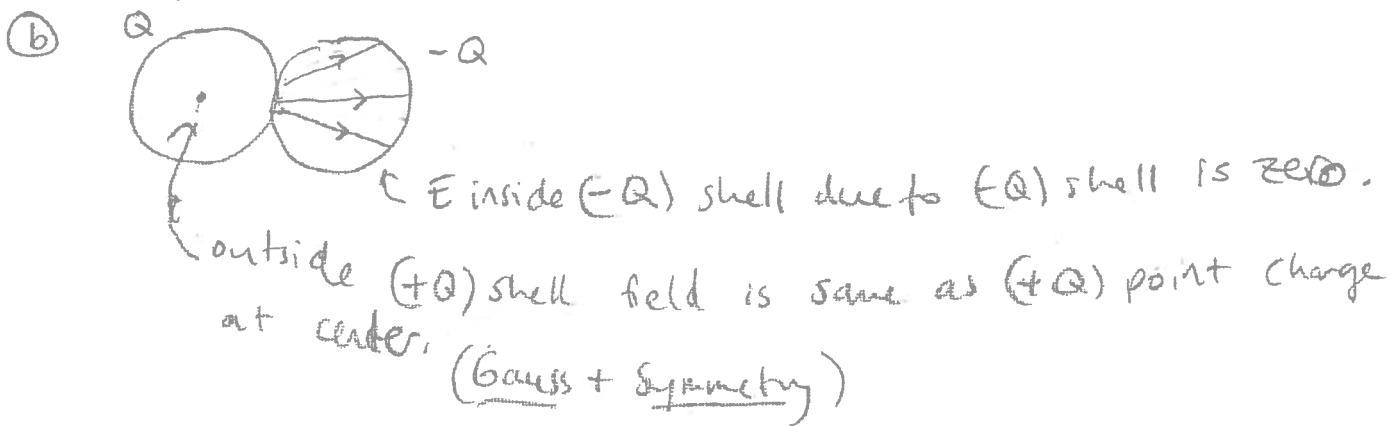 b Q -Q
E inside (-Q) shell due to (-Q) shell is zero.
outside (+Q) shell field is same as (+Q) point charge
at center.
(Gauss + Symmetry)